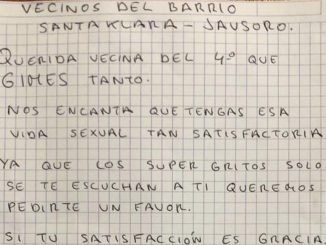 VECINOS DEL BARRIO
SANTA KLARA - JAUSORO.
QUERIDA VECINA DEL 4º QUE
GIMES TANTO.
NOS ENCANTA QUE TENGAS ESA
VIDA SEXUAL TAN SATISFACTORIA
YA QUE LOS SUPER GRITOS SOLO
SE TE ESCUCHAN A TI QUEREMOS
PEDIRTE UN FAVOR.
SI TU SATISFACCIÓN ES GRACIA